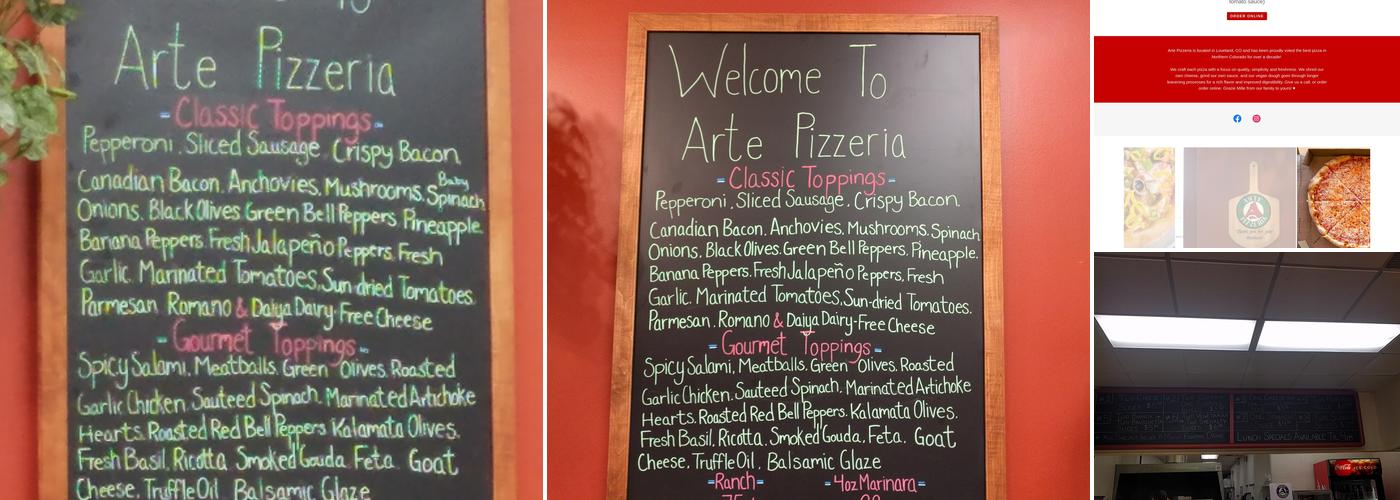 Arte Pizzeria
- Classic Toppings -
Pepperoni. Sliced Sausage. Crispy Bacon
Canadian Bacon. Anchovies. Mushrooms. Baby Spinach
Onions. Black Olives Green Bell Peppers. Pineapple.
Banana Peppers. Fresh Jalapeño Peppers. Fresh
Garlic. Marinated Tomatoes. Sun-dried Tomatoes.
Parmesan Romano & Daiya Dairy-Free Cheese
- Gourmet Toppings -
Spicy Salami. Meatballs. Green Olives. Roasted
Garlic Chicken. Sauteed Spinach. Marinated Artichoke
Hearts. Roasted Red Bell Peppers Kalamata Olives.
Fresh Basil. Ricotta. Smoked Gouda. Feta. Goat
Cheese. Truffle Oil. Balsamic Glaze
Welcome To
Arte Pizzeria
- Classic Toppings -
Pepperoni. Sliced Sausage. Crispy Bacon.
Canadian Bacon. Anchovies. Mushrooms. Spinach
Onions. Black Olives. Green Bell Peppers. Pineapple.
Banana Peppers. Fresh Jalapeño Peppers. Fresh
Garlic. Marinated Tomatoes. Sun-dried Tomatoes.
Parmesan. Romano & Daiya Dairy-Free Cheese
- Gourmet Toppings -
Spicy Salami. Meatballs. Green Olives. Roasted
Garlic Chicken. Sauteed Spinach. Marinated Artichoke
Hearts. Roasted Red Bell Peppers. Kalamata Olives.
Fresh Basil. Ricotta. Smoked Gouda. Feta. Goat
Cheese. Truffle Oil. Balsamic Glaze
- Ranch - - 4oz Marinara -
tomato sauce)
ORDER ONLINE
Arte Pizzeria is located in Loveland, CO and has been proudly voted the best pizza in
Northern Colorado for over a decade!
We craft each pizza with a focus on quality, simplicity and freshness. We shred our
own cheese, grind our own sauce, and our vegan dough goes through longer
leavening processes for a rich flavor and improved digestibility. Give us a call, or order
order online. Grazie Mille from our family to yours! ♥
ARTE
PIZZERIA
LUNCH SPECIALS AVAILABLE TIL 4PM
Coca-Cola